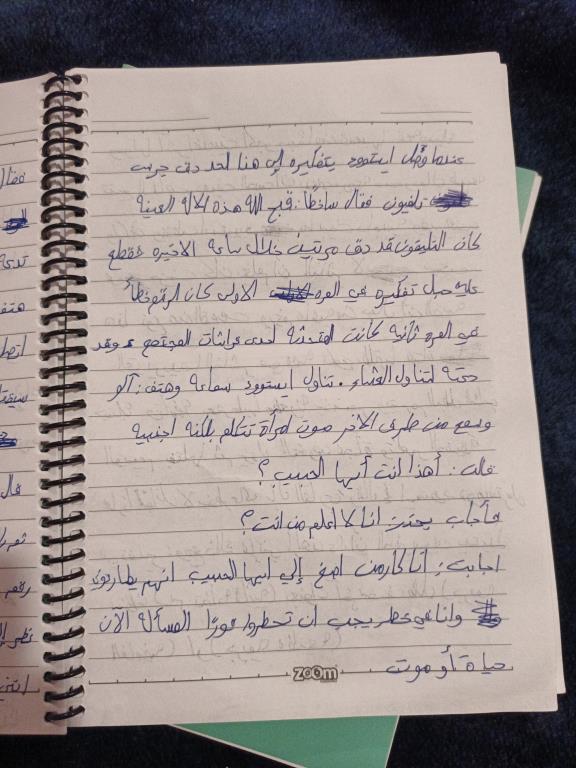 عندما وصل ايستوود بتفكيره إلى هنا لحد دق جرس
تلفيون فقال ساخطًا: قبح الله هذه الالة العينة
كان التليفون قد دق مرتين خلال ساعة الاخيره فقطع
عليه حبل تفكيره في المره الاولى كان الرقم خطأ
في المره ثانية كانت المتحدثه احدى عراشات المجتمع وقد
دعته لتناول العشاء. تناول ايستوود سماعة وهتف: آلو
وسمع من طرف الاخر صوت امرأة تتكلم بلكنه اجنبيه
قالت: أهذا انت أيها الحبيب؟
فأجاب بحذر: انا لا اعلم من انت؟
اجابت: أنا كارمن اصغ إلي ايها الحبيب انهم يطاردوني
وانا في خطر يجب ان تحضر فورًا المسألة الآن
حياة أو موت
zoom
فقال
هتف
قال
رقم